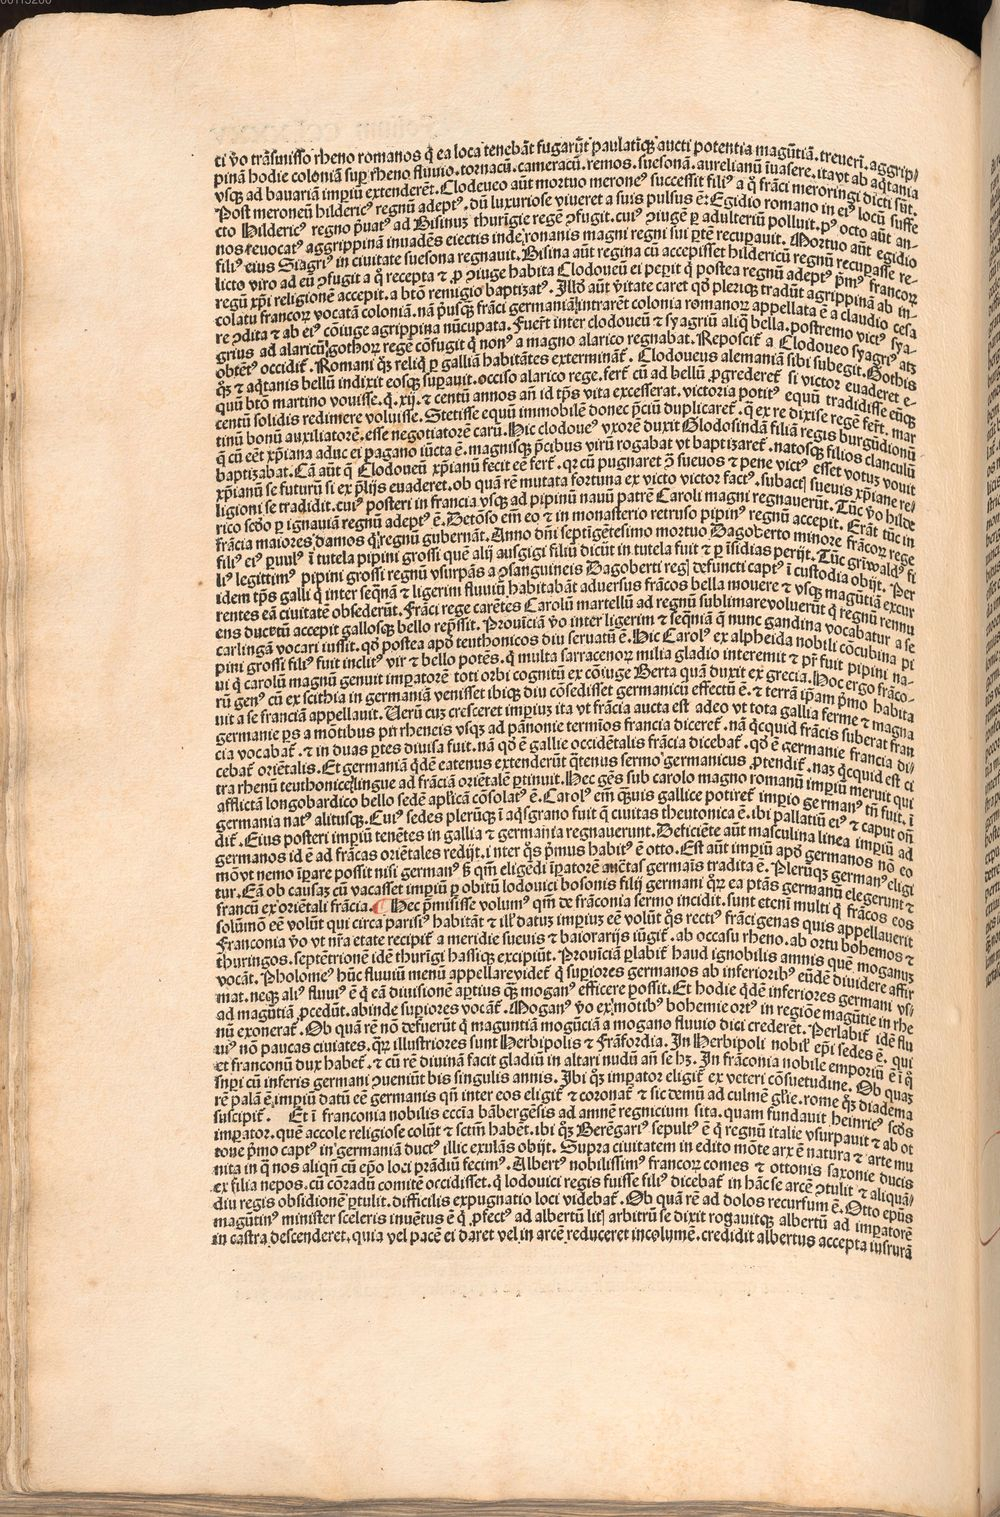 ti ṽo trãsmisso rheno romanos q̃ ea loca tenebãt fugarũt paulatiq; aucti potentia magũtiã. treueri. aggrip/
pinã hodie coloniã sup rheno fluuio. tornacũ. cameracũ. remos. suesonã. aurelianũ ĩuasere. ita vt ab aq̃tania
vsq; ad bauariam impiũ extenderẽt. Clodeueo aũt mortuo meroneꝰ successit filiꝰ a q̃ frãci meroringi dicti sũt.
Post meroneũ hildericꝰ regnũ adeptꝰ. dũ luxuriose viueret a suis pulsus ẽ: Egidio romano in eiꝰ locũ suffe
cto Hildericꝰ regno p̃uatꝰ ad Bisinuz thurĩgie regẽ ꝯfugit. cuiꝰ ꝯiugẽ ꝑ adulteriũ polluit. pꝰ octo aũt an-
nos reuocatꝰ aggrippinã inuadẽs eiectis inde romanis magni regni sui ꝑtẽ recupauit. Mortuo aũt egidio
filiꝰ eius Siagriꝰ in ciuitate suesona regnauit. Bisina aũt regina cũ accepisset hildericũ regnũ recupasse re-
licto viro ad eũ ꝯfugit a q̃ recepta ⁊ ꝓ ꝯiuge habita Clodoueũ ei peꝑit q̃ postea regnũ adeptꝰ p̃mꝰ francoꝝ
regũ xp̃i religionẽ accepit. a btõ remigio baptizatꝰ. Illd̃ aũt ṽitate caret qd̃ pleriq; tradũt agrippinã ab in-
colatu francoꝝ vocatã coloniã. nã p̃usq; frãci germaniã intrarẽt colonia romanoꝝ appellata ẽ a claudio cesa
re ꝯdita ⁊ ab eiꝰ cõiuge agrippina nũcupata. Fuer̃t inter clodoueũ ⁊ syagriũ aliq̃ bella. postremo victꝰ sya-
grius ad alaricũ gothoꝝ regẽ cõfugit q̃ nonꝰ a magno alarico regnabat. Reposcit̃ a Clodoueo syagriꝰ atz
obtẽtꝰ occidit̃. Romani q̃z reliq̃ ꝑ galliã habitãtes exterminat̃. Clodoueus alemaniã sibi subegit. Gothis
q̃z ⁊ aq̃tanis bellũ indixit eosq; supauit. occiso alarico rege. fert̃ cũ ad bellũ ꝓgrederet̃ si victor euaderet e-
quũ btõ martino vouisse. q̃. xij. ⁊ centũ annos añ id tp̃s vita excesserat. victoria potitꝰ equũ tradidisse eũq;
centũ solidis redimere voluisse. Stetisse equũ immobilẽ donec p̃ciũ duplicaret̃. q̃ ex re dixise regẽ fert̃. mar
tinũ bonũ auxiliatorẽ. esse negotiatorẽ carũ. Hic clodoueꝰ vxorẽ duxit Glodosindãm filiã regis burgũdionũ
q̃ cũ eẽt xp̃iana aduc ei pagano iũcta ẽ. magnisq; p̃cibus virũ rogabat vt baptizaret̃. natosq; filios clanculũ
baptizabat. Cã aũt q̃ Clodoueũ xp̃ianũ fecit eẽ fert̃. qꝛ cũ pugnaret ꝯ sueuos ⁊ pene victꝰ esset votuz vouit
xp̃ianũ se futurũ si ex p̃lijs euaderet. ob quã rẽ mutata fortuna ex victo victor factꝰ. subactꝭ sueuis xp̃iane re/
ligioni se tradidit. cuiꝰ posteri in francia vsq; ad pipinũ nauũ patrẽ Caroli magni regnauerũt. Tũc ṽo hilde
rico scd̃o ꝑ ignauiã regnũ adeptꝰ ẽ. Detõso eĩm eo ⁊ in monasterio retruso pipinꝰ regnũ accepit. Erãt tũc in
frãcia maiores damos q̃ regnũ gubernãt. Anno dñi septĩgẽtesimo mortuo Dagoberto minore frãcoꝝ rege
filiꝰ eiꝰ puulꝰ ĩ tutela pipini grossi quẽ alij ausgigi filiũ dicũt in tutela fuit ⁊ ꝑ ĩsidias perijt. Tũc gr̃iwaldꝰ fi
liꝰ legittimꝰ pipini grossi regnũ vsurpãs a ꝯsanguineis Dagoberti regꝭ defuncti captꝰ ĩ custodia obijt. Per
idem tp̃s galli q̃ inter seq̃nã ⁊ ligerim fluuiũ habitabãt aduersus frãcos bella mouere ⁊ vsq; magũtiã excur
rentes eã ciuitatẽ obsederũt. Frãci rege carẽtes Carolũ martellũ ad regnũ sublimare voluerũt q̃ regnũ rennu
ens ducatũ accepit gallosq; bello rep̃ssit. Prouĩciã ṽo inter ligerim ⁊ seq̃niã q̃ nunc gandina vocabatur a se
carlingã vocari iussit. qd̃ postea apd̃ teuthonicos diu seruatũ ẽ. Hic Carolꝰ ex alpheida nobili cõcubina pi
pini grossi filiꝰ fuit inclitꝰ vir ⁊ bello potẽs. q̃ multa sarracenoꝝ milia gladio interemit ⁊ pr̃ fuit pipini na-
ui q̃ carolũ magnũ genuit impatorẽ toti orbi cognitũ ex cõiuge Berta quã duxit ex grecia. Hoc ergo frãco-
rũ genꝰ cũ ex scithia in germaniã venisset ibiq; diu cõsedisset germanicũ effectũ ẽ. ⁊ terrã ip̃am p̃mo habita
uit a se franciã appellauit. Uerũ cuz cresceret impiuz ita vt frãcia aucta est adeo vt tota gallia ferme ⁊ magna
germanie ꝑs a mõtibus pirrheneis vsqz ad pãnonie termĩos francia diceret̃. nã q̃cquid frãcis suberat fran
cia vocabat̃. ⁊ in duas ꝑtes diuisa fuit. nã qd̃ ẽ gallie occidẽtalis frãcia dicebat̃. qd̃ ẽ germanie francia di/
cebat̃ oriẽtalis. Et germaniã q̃dẽ eatenus extenderũt q̃tenus sermo germanicus ꝓtendit̃. naz q̃cquid est ci
tra rhenũ teuthonice lingue ad frãciã oriẽtalẽ ꝑtinuit. Hec gẽs sub carolo magno romanũ impiũ meruit qui
afflictã longobardico bello sedẽ aplicã cõsolatꝰ ẽ. Carolꝰ eĩm q̃uis gallice potiret̃ impio germanꝰ tñ fuit. ĩ
germania natꝰ alitusq;. Cuiꝰ sedes plerũq; ĩ aq̃sgrano fuit q̃ ciuitas theutonica ẽ. ibi pallatiũ eiꝰ ⁊ caput oñ
dit̃. Eius posteri impiũ tenẽtes in gallia ⁊ germania regnauerunt. Deficiẽte aũt masculina linea impiũ ad
germanos id ẽ ad frãcas oriẽtales redijt. inter q̃s p̃mus habitꝰ ẽ otto. Est aũt impiũ apd̃ germanos nõ eo
mõ vt nemo ĩpare possit nisi germanꝰ ß qm̃ eligẽdi ĩpatorẽ auctas germaĩs tradita ẽ. Plerũq; germanꝰ eligi
tur. Eã ob causaz cũ vacasset impiũ ꝑ obitũ lodouici bosonis filij germani q̃ꝝ ea ptãs germanũ elegerunt ⁊
francũ ex oriẽtali frãcia. ¶ Hec p̃misisse volumꝰ qm̃ de frãconia sermo incidit. sunt etenĩ multi q̃ frãcos eos
solũmõ eẽ volũt qui circa parisiꝰ habitãt ⁊ illꝰ datuz impiuz eẽ volũt q̃s rectiꝰ frãcigenas quis appellauerit
Franconia ṽo vt nr̃a etate recipit̃ a meridie sueuis ⁊ baiorarijs iũgit̃. ab occasu rheno. ab ortu bohemos ⁊
thuringos. septẽtrionẽ idẽ thurĩgi hassiq; excipiũt. Prouĩciã plabit̃ haud ignobilis amnis quẽ moganuz
vocãt. Pholomeꝰ hũc fluuiũ menũ appellare videt̃ q̃ supiores germanos ab inferioribꝰ eũdẽ diuidere affir
mat. neq; aliꝰ fluuiꝰ ẽ q̃ eã diuisionẽ aꝑtius q̃; moganꝰ efficere possit. Et hodie q̃dẽ inferiores germani vs/
ad magũtiã ꝓcedũt. abinde supiores vocãt̃. Moganꝰ ṽo ex mõtibꝰ bohemie ortꝰ in regiõe magũtie in rhe
nũ exonerat̃. Ob quã rẽ nõ defuerũt q̃ maguntiã mogũciã a mogano fluuio dici crederẽt. Perlabit̃ idẽ flu
uiꝰ nõ paucas ciuiates. q̃ꝝ illustriores sunt Herbipolis ⁊ Frãkfordia. In Herbipoli nobilꝭ ep̃i sedes ẽ. qui
et franconũ dux habet̃. ⁊ cũ rẽ diuinã facit gladiũ in altari nudũ añ se hz. In frãconia nobile emporiũ ẽ ĩ q̃
supi cũ inferis germani ꝯueniũt bis singulis annis. Ibi q̃z impator eligit̃ ex veteri cõsuetudine. Ob quaz
rẽ palã ẽ impiũ datũ eẽ germanis qñ inter eos eligit̃ ⁊ coronat̃ ⁊ sic demũ ad culmẽ gl̃ie. rome q̃z diadema
suscipit̃. Et ĩ franconia nobilis ecc̃ia bãbergẽsis ad amnẽ regnicium sita. quam fundauit heinricꝰ scd̃s
impator. quẽ accole religiose colũt ⁊ sctm̃ habẽt. ibi q̃z Berẽgariꝰ sepultꝰ ẽ q̃ regnũ italie vsurpauit ⁊ ab ot
tone p̃mo captꝰ in germaniã ductꝰ illic exulãs obijt. Supra ciuitatem in edito mõte arx ẽ natura ⁊ arte mu
nita in q̃ nos aliqñ cũ ep̃o loci prãdiũ fecimꝰ. Albertꝰ nobilissimꝰ francoꝝ comes ⁊ ottonis saxonie ducis
ex filia nepos. cũ cõradũ comitẽ occidisset. q̃ lodouici regis fuisse filiꝰ dicebat̃ in hãc se arcẽ ꝯtulit ⁊ aliquã/
diu regis obsidionẽ ꝑtulit. difficilis expugnatio loci videbat̃. Ob quã rẽ ad dolos recursum ẽ. Otto ep̃us
magũtinꝰ minister sceleris inuẽtus ẽ q̃ ꝓfectꝰ ad albertũ litꝭ arbitrũ se dixit rogauitq; albertũ ad impatorẽ
in castra descenderet. quia vel pacẽ ei daret vel in arcẽ reduceret incolumẽ. credidit albertus accepta iusiurã